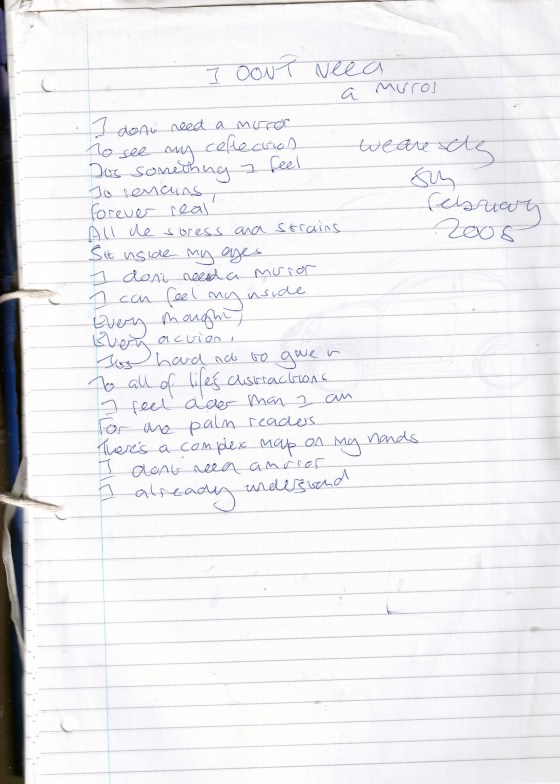 I DON'T NEED
a mirror
I don't need a mirror
To see my reflection
It's something I feel
Forever real
All the stress and strains
Sit inside my eyes
I don't need a mirror
I can feel my inside
Every thought,
Every action,
It's hard not to give in
To all of life's distractions
I feel older than I am
For the palm readers
There's a complex map on my hands
I don't need a mirror
I already understand
Wednesday
8th
February